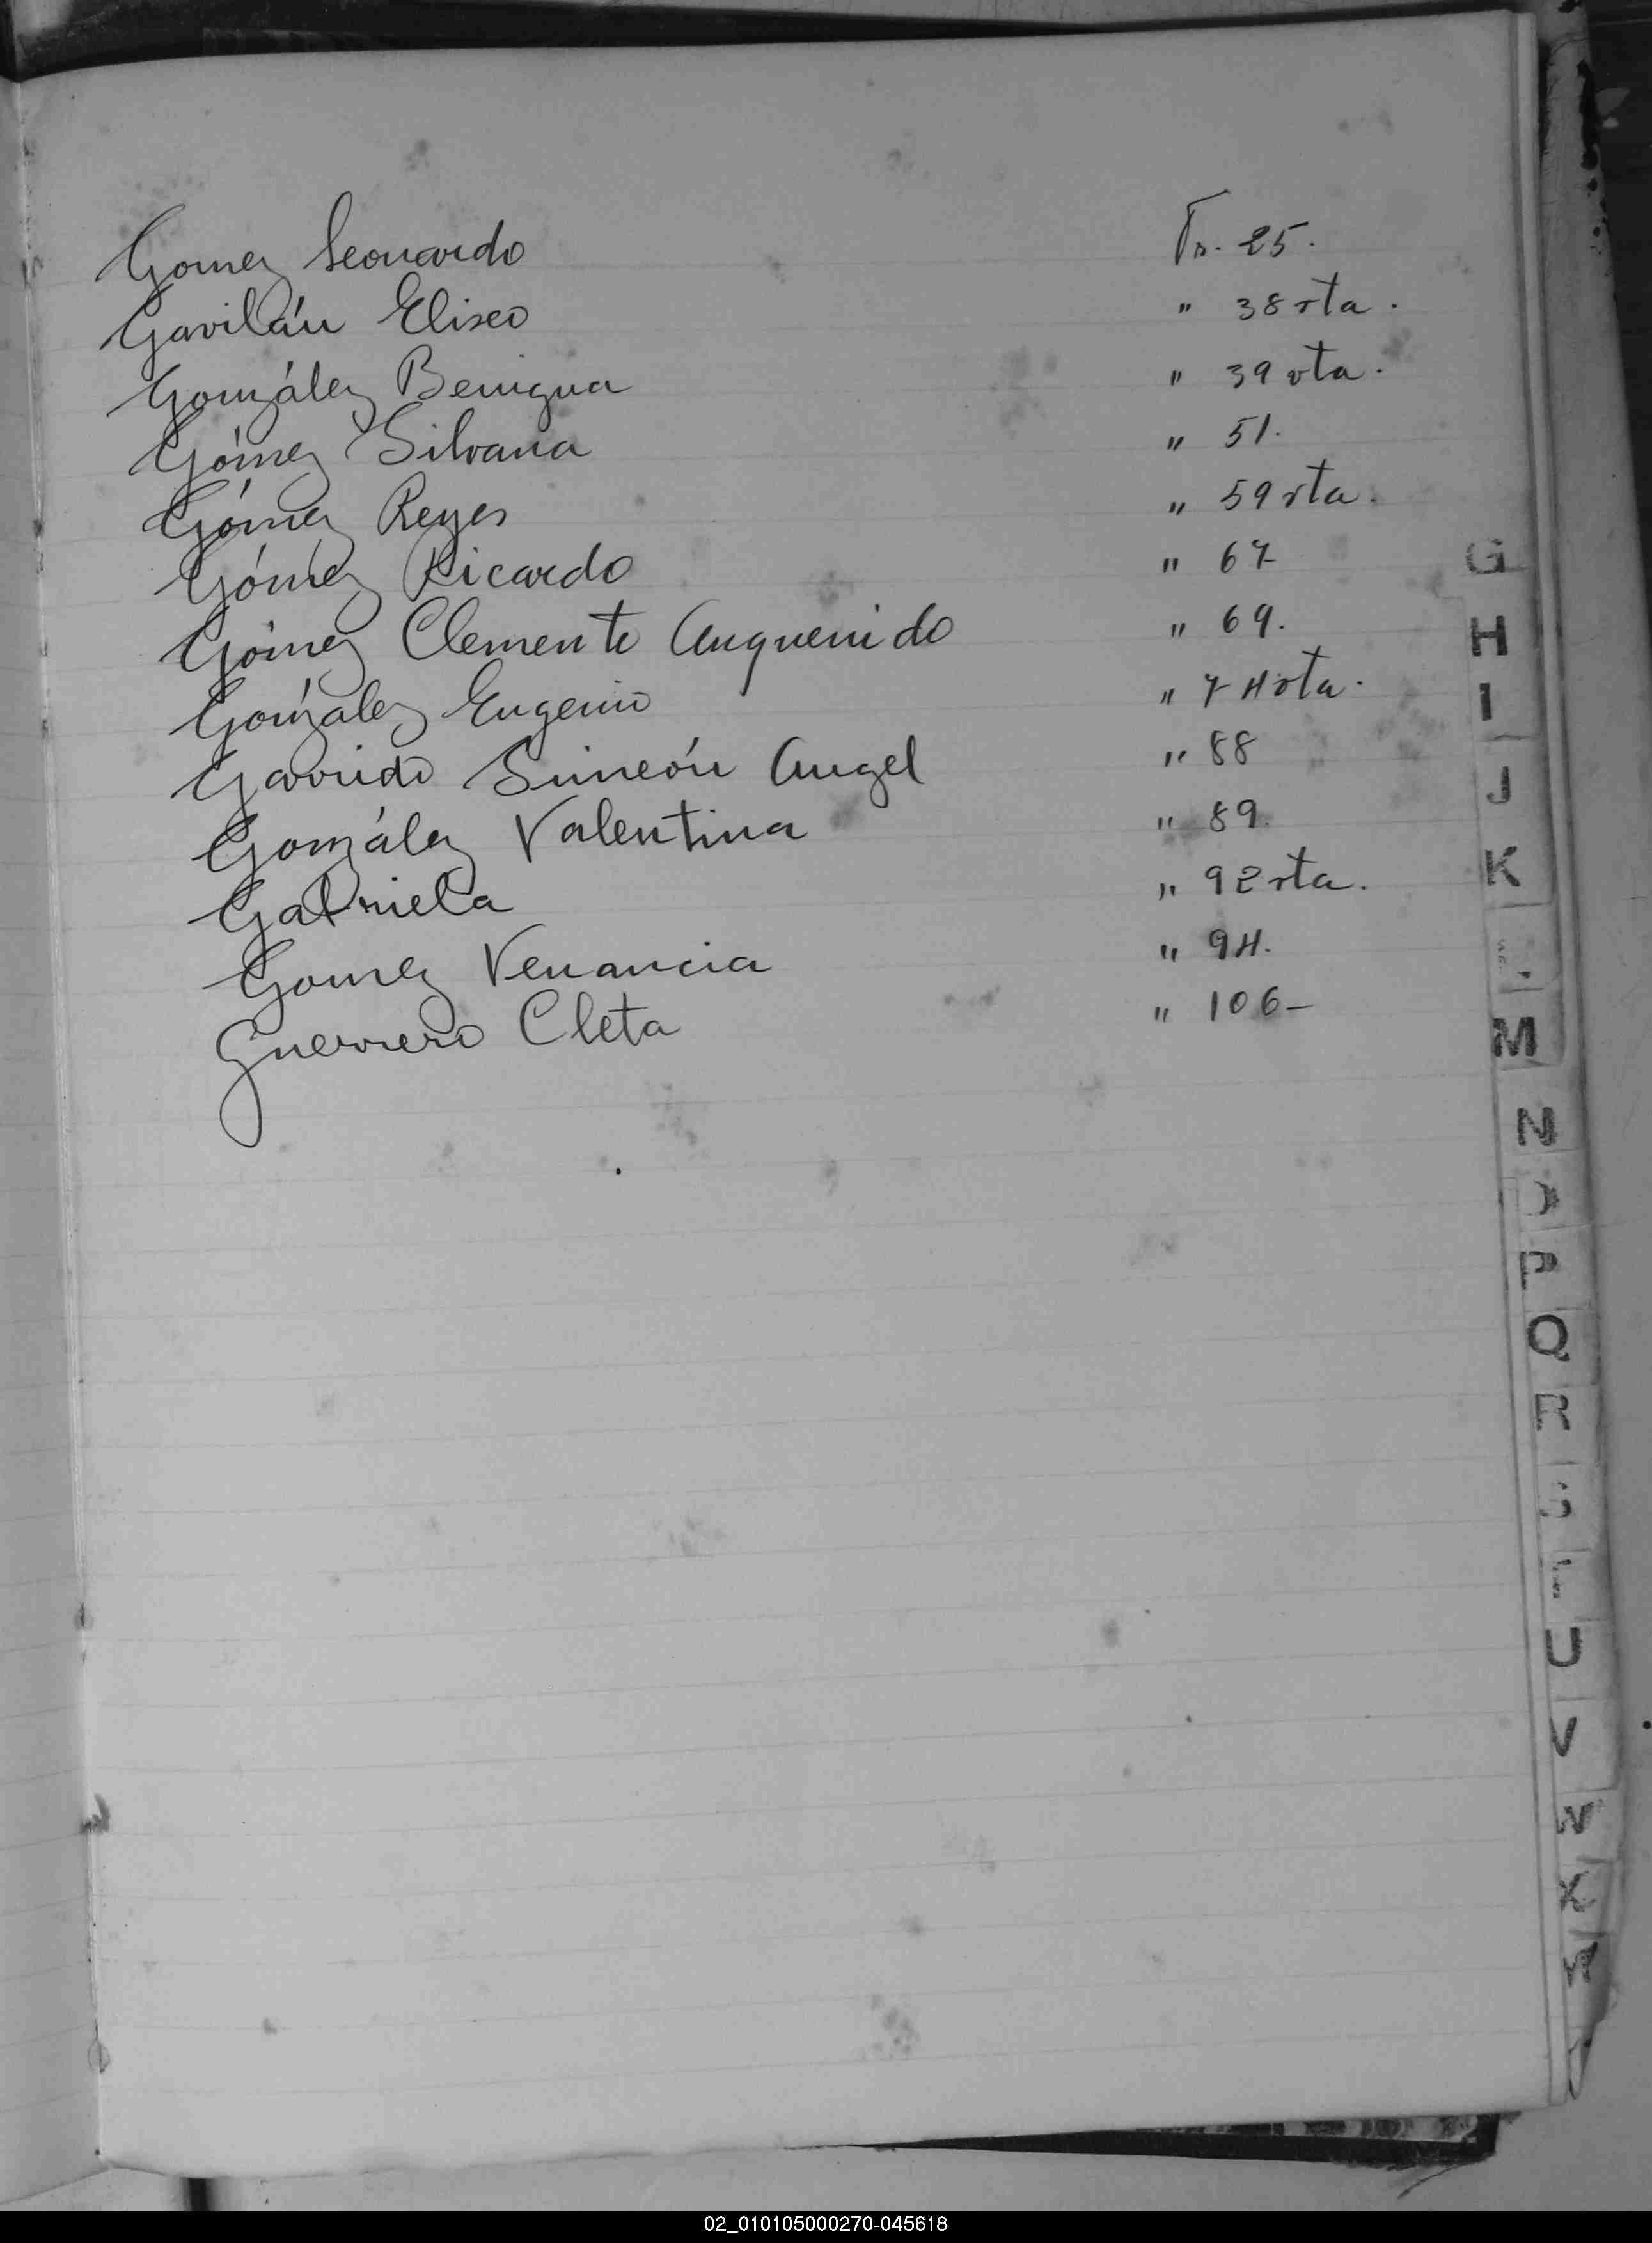 Gomez Leonardo Fs. 25.
Gavilán Eliseo " 38 vta.
González Benigna " 39 vta.
Gómez Silvana " 51.
Gómez Reyes " 59 vta.
Gómez Ricardo " 67
Gómez Clemente " 69.
González Eugenio " 74 vta.
Garrido Simeón Angel " 88
González Valentina " 89.
Gabriela " 92 vta.
Gomez Venancia " 94.
Guerrero Cleta " 106-
G
H
I
J
K
M
N
P
Q
R
S
T
U
V
W
X
02_010105000270-045618